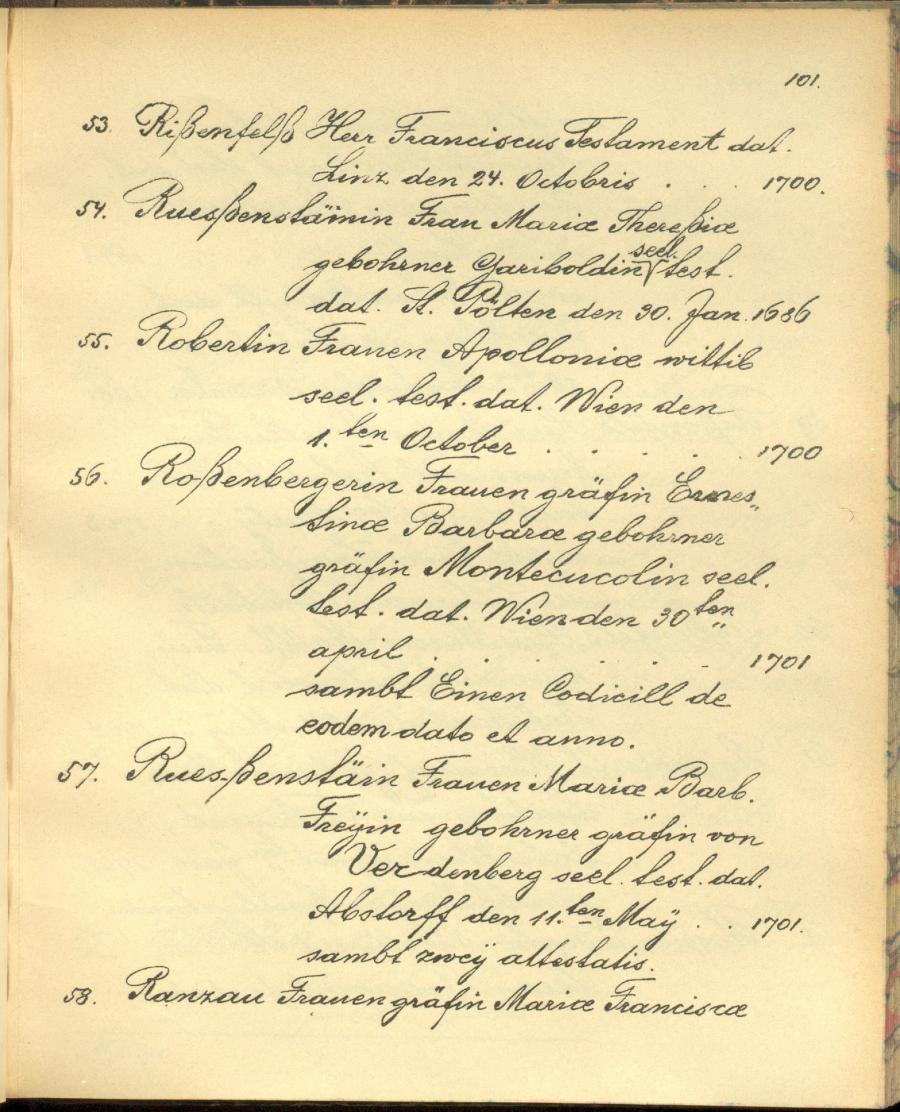 101.
53. Rißenfelß Herr Franciscus Testament dat.
Linz den 24. Octobris . . . 1700.
54. Ruesßenstäinin Frau Mariæ Thereßiæ
seel.
gebohrner Gariboldin test.
dat. St. Pölten den 30. Jan. 1686
55. Robertin Frauen Apolloniæ wittib
seel. test. dat. Wien den
1.ten October . . . . . 1700
56. Roßenbergerin Frauen gräfin Ernes„
tinæ Barbaræ gebohrner
gräfin Montecucolin seel.
test. dat. Wien den 30ten
april . . . . . . 1701
sambt Einen Codicill de
eodem dato et anno.
57. Ruesßenstäin Frauen Mariæ Barb.
Freÿin gebohrner gräfin von
Verdenberg seel. test. dat.
Abstorff den 11.ten Maÿ . . 1701.
sambt zweÿ attestatis.
58. Ranzau Frauen gräfin Mariæ Franciscæ